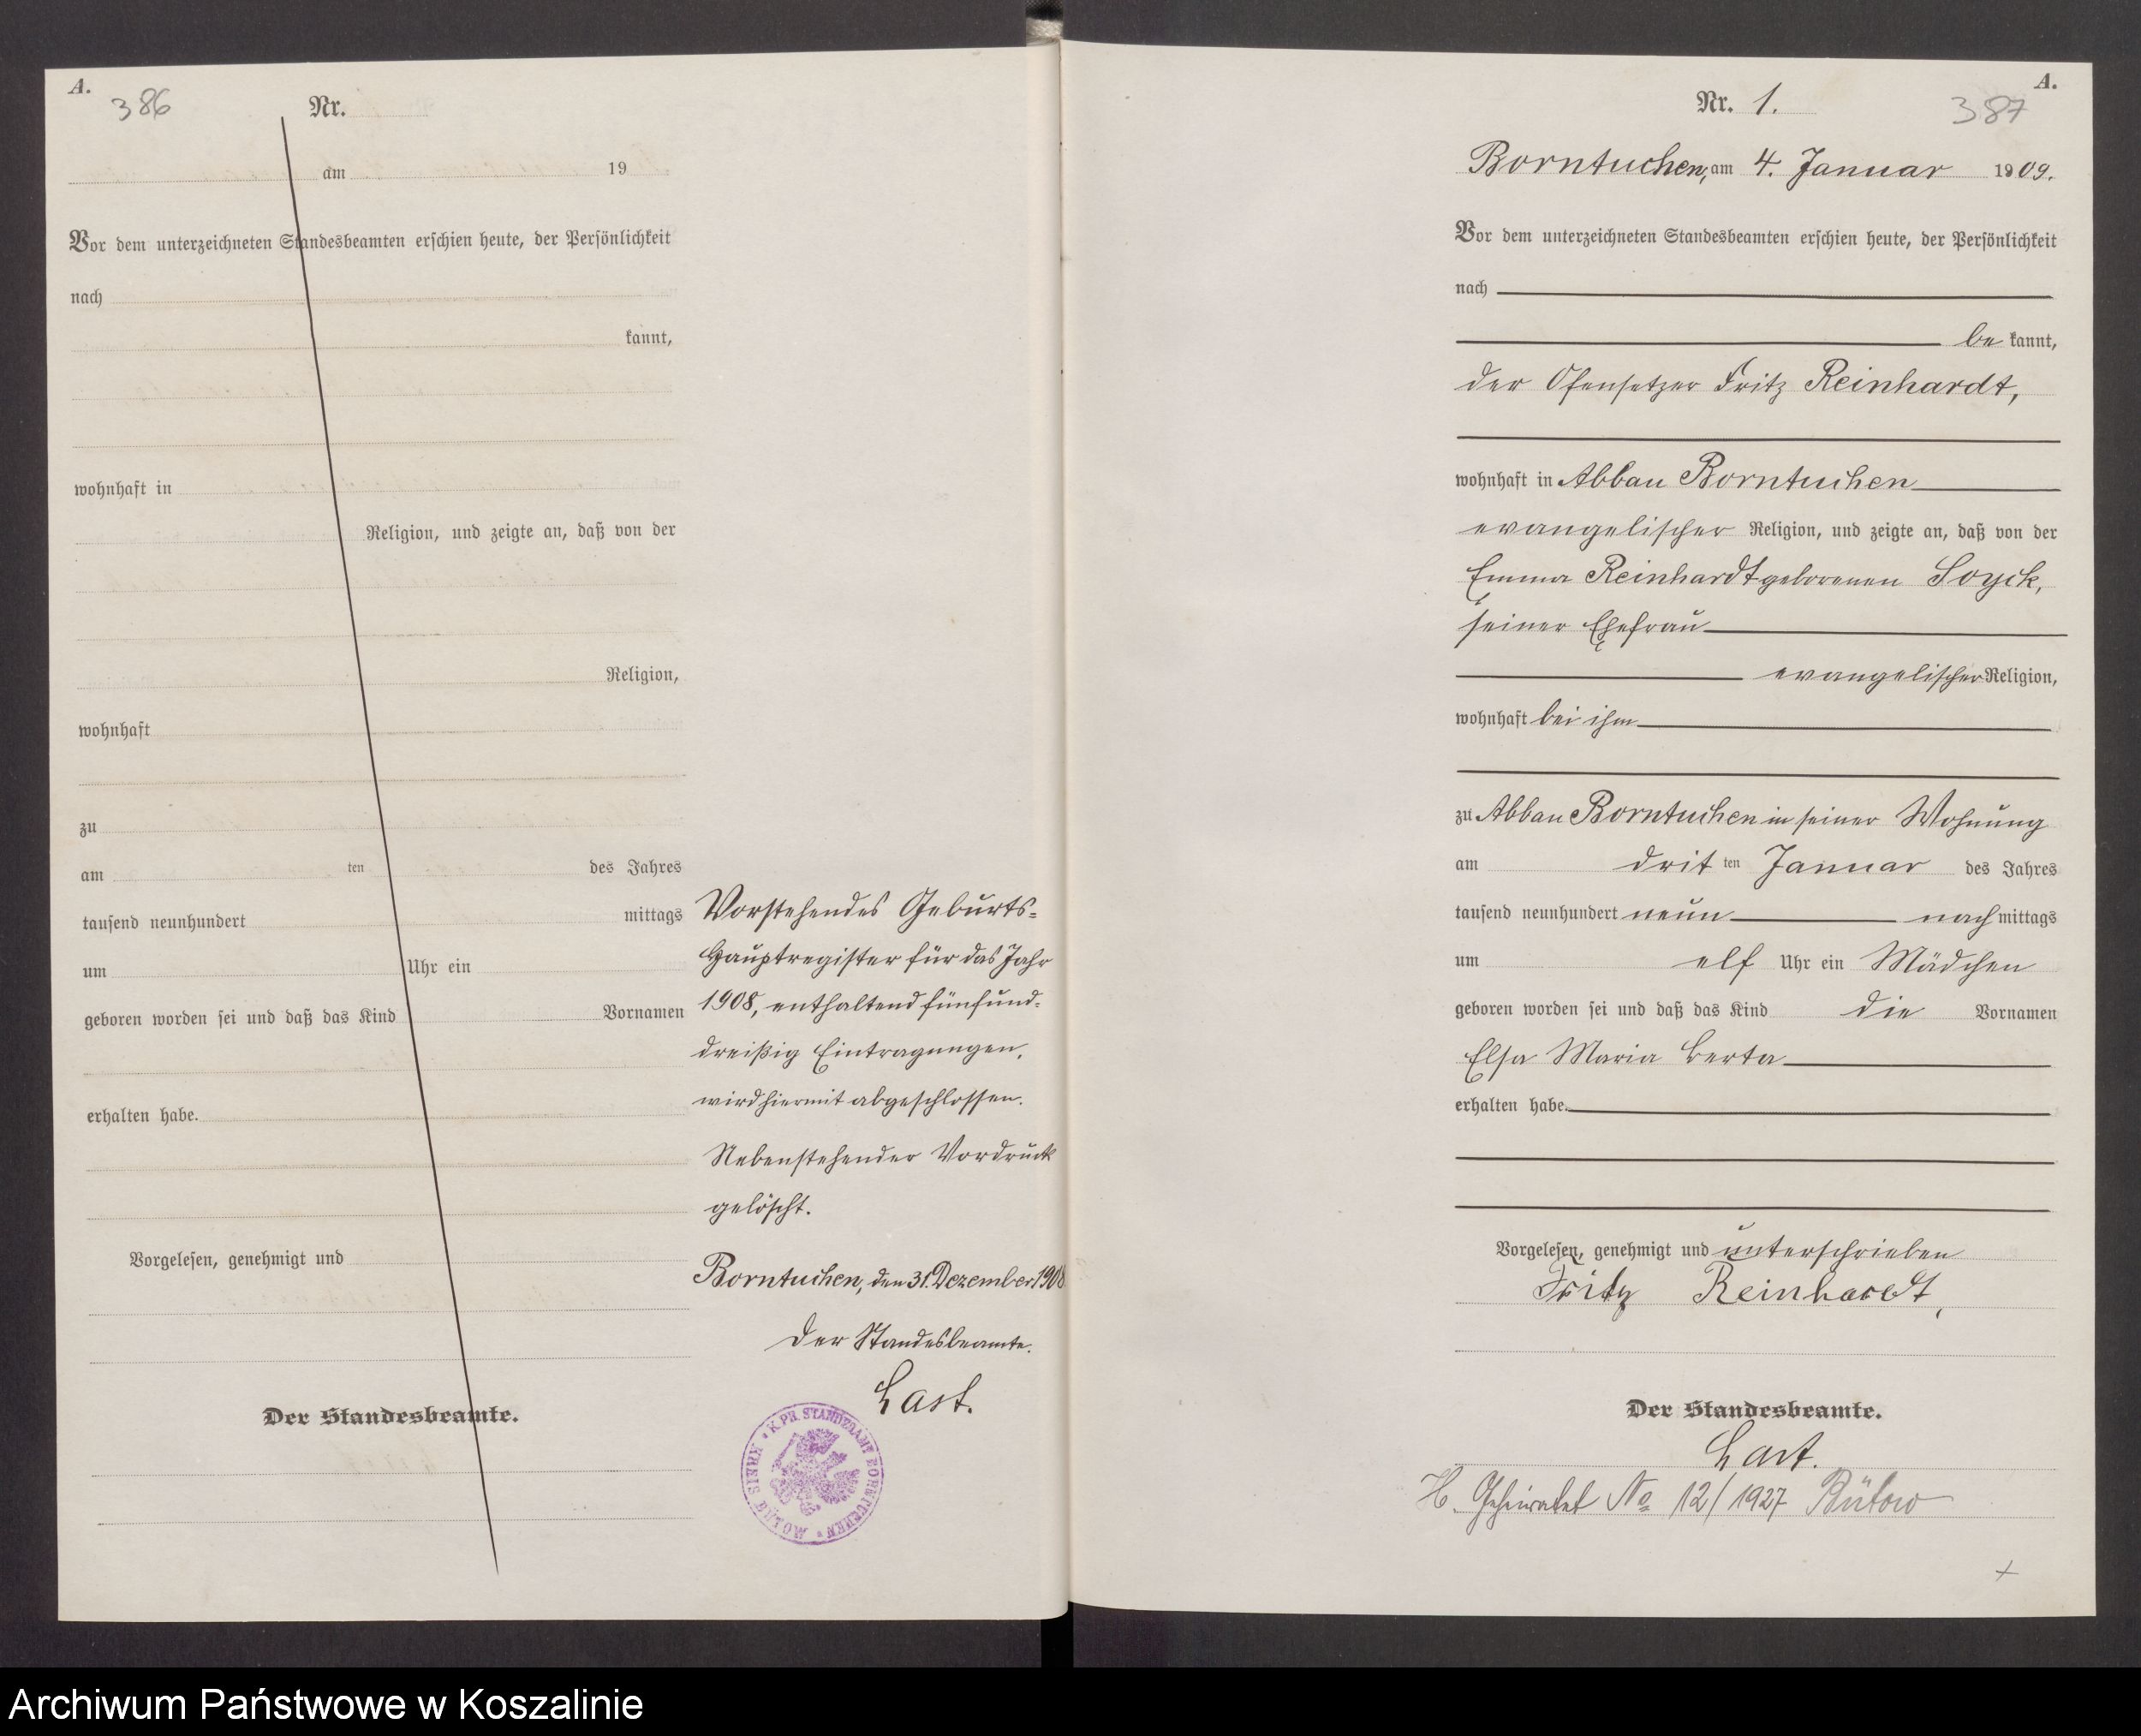 A.
386
Nr.
am 19
Vor dem unterzeichneten Standesbeamten erschien heute, der Persönlichkeit
nach
kannt,
wohnhaft in
Religion, und zeigte an, daß von der
Religion,
wohnhaft
zu
am ten des Jahres
tausend neunhundert mittags
um Uhr ein
geboren worden sei und daß das Kind Vornamen
erhalten habe.
Vorgelesen, genehmigt und
Der Standesbeamte.
Vorstehendes Geburts-
Hauptregister für das Jahr
1908, enthaltend fünfund-
dreißig Eintragungen,
wird hiermit abgeschlossen.
Nebenstehender Vordruck
gelöscht.
Borntuchen, den 31. Dezember 1908
Der Standesbeamte.
Last.
K. PR. STANDESAMT BORNTUCHEN * KREIS BÜTOW *
A.
Nr. 1.
387
Borntuchen, am 4. Januar 1909.
Vor dem unterzeichneten Standesbeamten erschien heute, der Persönlichkeit
nach
be kannt,
der Ofensetzer Fritz Reinhardt,
wohnhaft in Abbau Borntuchen
evangelischer Religion, und zeigte an, daß von der
Emma Reinhardt geborenen Soyck,
seiner Ehefrau
evangelischer Religion,
wohnhaft bei ihm
zu Abbau Borntuchen in seiner Wohnung
am drit ten Januar des Jahres
tausend neunhundert neun nach mittags
um elf Uhr ein Mädchen
geboren worden sei und daß das Kind die Vornamen
Elsa Maria Berta
erhalten habe.
Vorgelesen, genehmigt und unterschrieben
Fritz Reinhardt,
Der Standesbeamte.
Last.
H. Geheiratet No 12/1927 Bütow
Archiwum Państwowe w Koszalinie